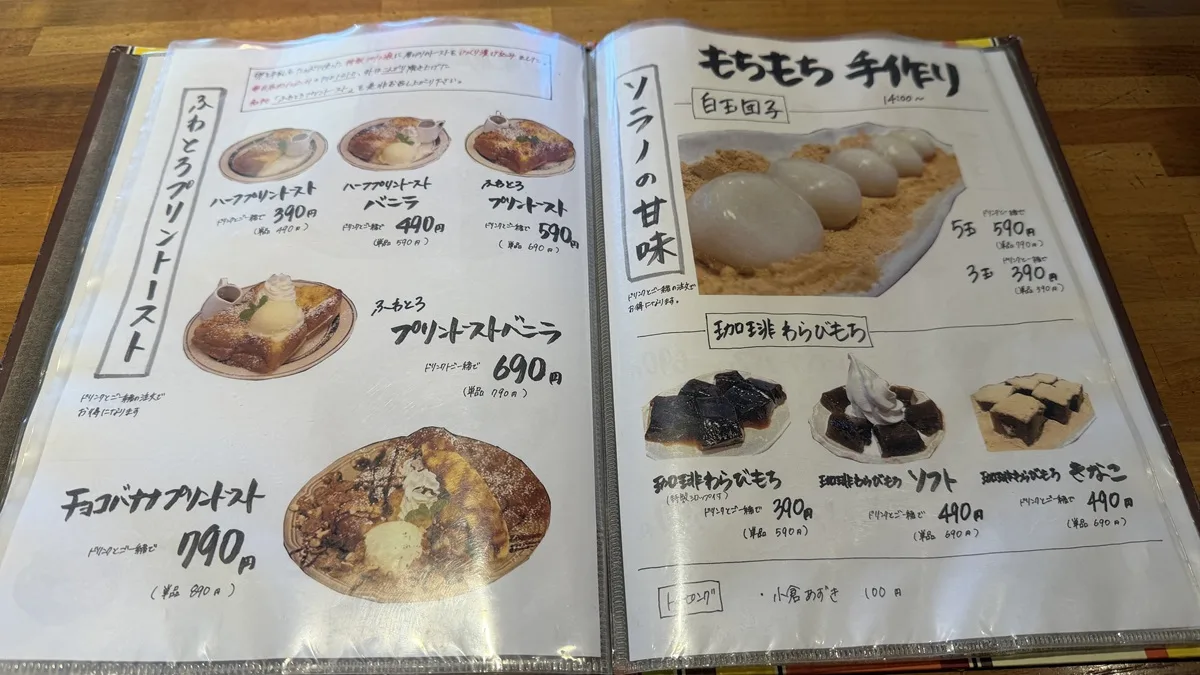 ふわとろプリントースト
ドリンクとご一緒の注文で
お得になります
ハーフプリントースト
ドリンクとご一緒で 390円
(単品 490円)
ハーフプリントースト
バニラ
ドリンクとご一緒で 490円
(単品 590円)
ふわとろ
プリントースト
ドリンクとご一緒で 590円
(単品 690円)
ふわとろ
プリントーストバニラ
ドリンクとご一緒で 690円
(単品 790円)
チョコバナナプリントースト
ドリンクとご一緒で 790円
(単品 890円)
ソラノの甘味
ドリンクとご一緒の注文で
お得になります。
もちもち 手作り
14:00〜
白玉団子
ドリンクと一緒で
5玉 590円
(単品 790円)
ドリンクと一緒で
3玉 390円
珈琲わらびもち
珈琲わらびもち
ドリンクとご一緒で 390円
(単品 590円)
珈琲わらびもち ソフト
ドリンクとご一緒で 490円
(単品 690円)
珈琲わらびもち きなこ
ドリンクとご一緒で 490円
(単品 690円)
トッピング
・小倉あずき 100円